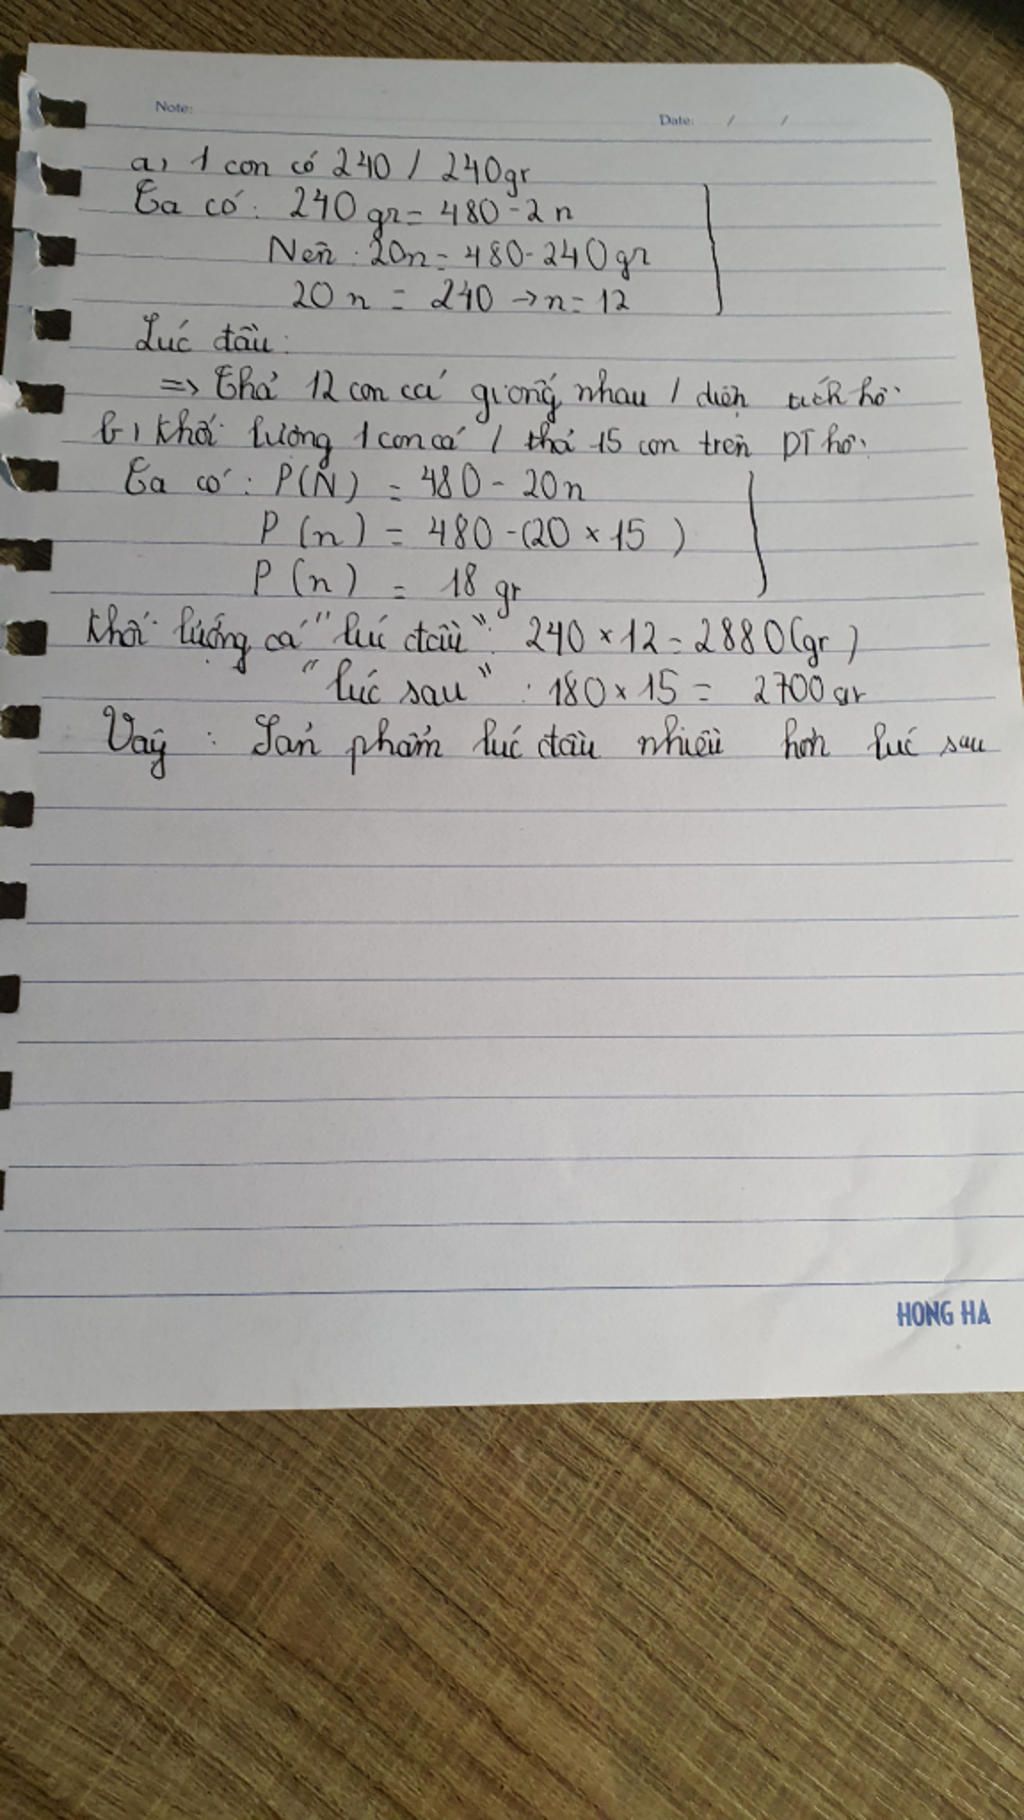 Note:
Date: / /
a, 1 con có 240 / 240gr
Ta có: 240gr = 480 - 2n
Nên: 20n = 480 - 240gr
20n = 240 → n = 12
Lúc đầu:
=> Thả 12 con cá giống nhau / diện tích hồ.
b, Khối lượng 1 con cá / thả 15 con trên DT hồ.
Ta có: P(N) = 480 - 20n
P(n) = 480 - (20 × 15)
P(n) = 18 gr
Khối lượng cá "lúc đầu": 240 × 12 = 2880(gr)
"lúc sau": 180 × 15 = 2700gr
Vậy: Sản phẩm lúc đầu nhiều hơn lúc sau
HONG HA